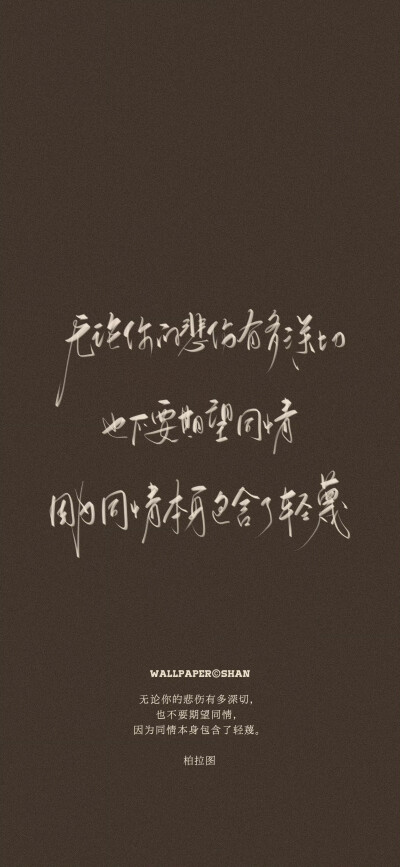 无论你的悲伤有多深切
也不要期望同情
因为同情本身包含了轻蔑
WALLPAPER©SHAN
无论你的悲伤有多深切，
也不要期望同情，
因为同情本身包含了轻蔑。
柏拉图